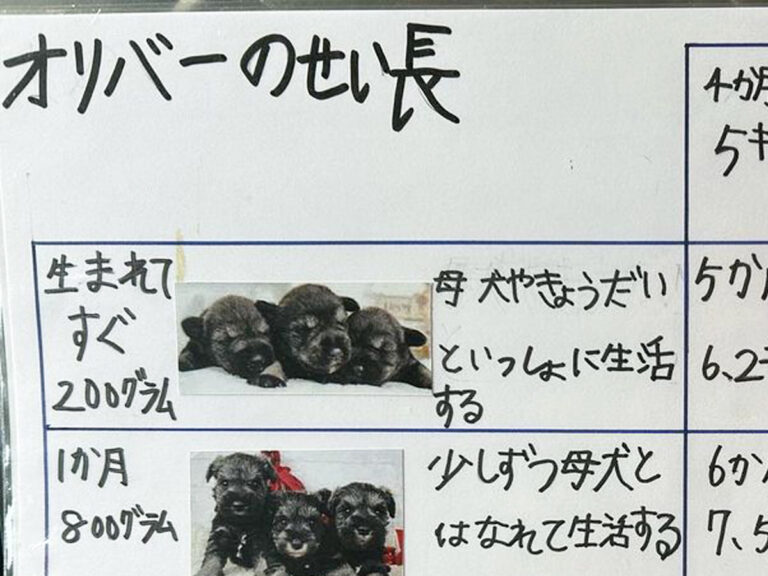 オリバーのせい長
生まれて
すぐ
200グラム
母犬やきょうだい
といっしょに生活
する
1か月
800グラム
少しずつ母犬と
はなれて生活する
4か月
5キ
5か月
6.2
6か
7.5